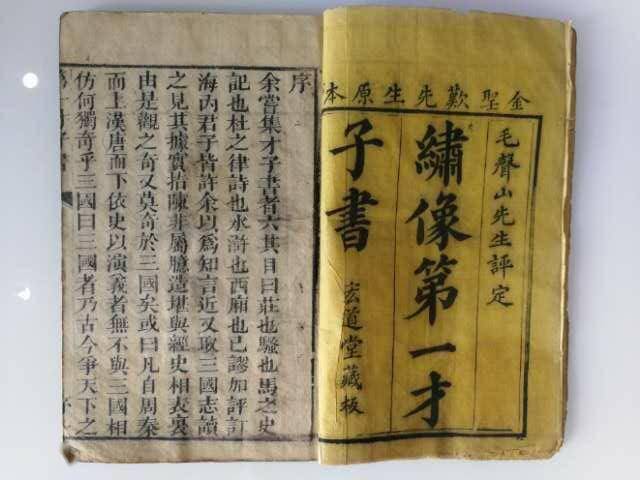 金聖歎先生原本
毛聲山先生評定
繡像第一才
子書
宏道堂藏板
序
余嘗集才子書者六其目曰莊也騷也馬之史
記也杜之律詩也水滸也西廂也已謬加評訂
海內君子皆許余以爲知言近又取三國志讀
之見其據實指陳非屬臆造堪與經史相表裏
由是觀之奇又莫奇於三國矣或曰凡自周秦
而上漢唐而下依史以演義者無不與三國相
仿何獨奇乎三國曰三國者乃古今爭天下之